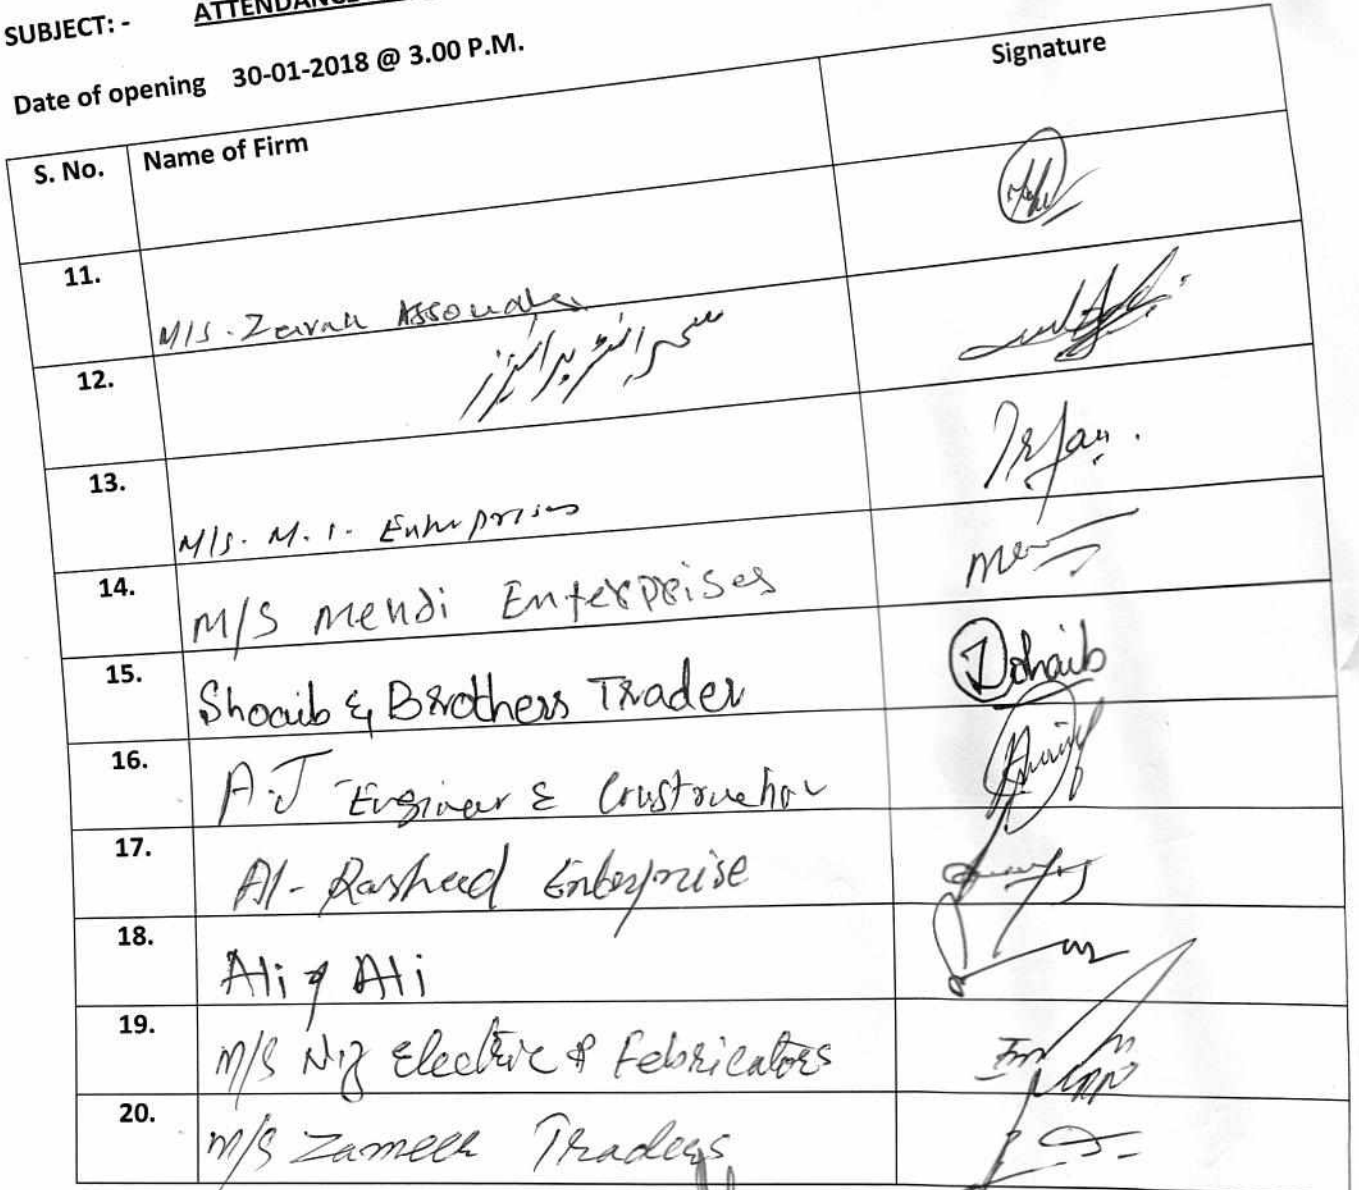 SUBJECT: -
Date of opening 30-01-2018 @ 3.00 P.M.
S. No. Name of Firm Signature
11. M/S. Zavran Associates
12. انٹرپرائیزز
13. M/S. M. I. Enterprises Irfan.
14. M/S Mendi Enterprises
15. Shoaib & Brothers Trader Shoaib
16. A.J Engineer & Construction
17. Al-Rasheed Enterprise
18. Ali & Ali
19. M/S Niz Electric & Febricators
20. M/S Zameer Traders